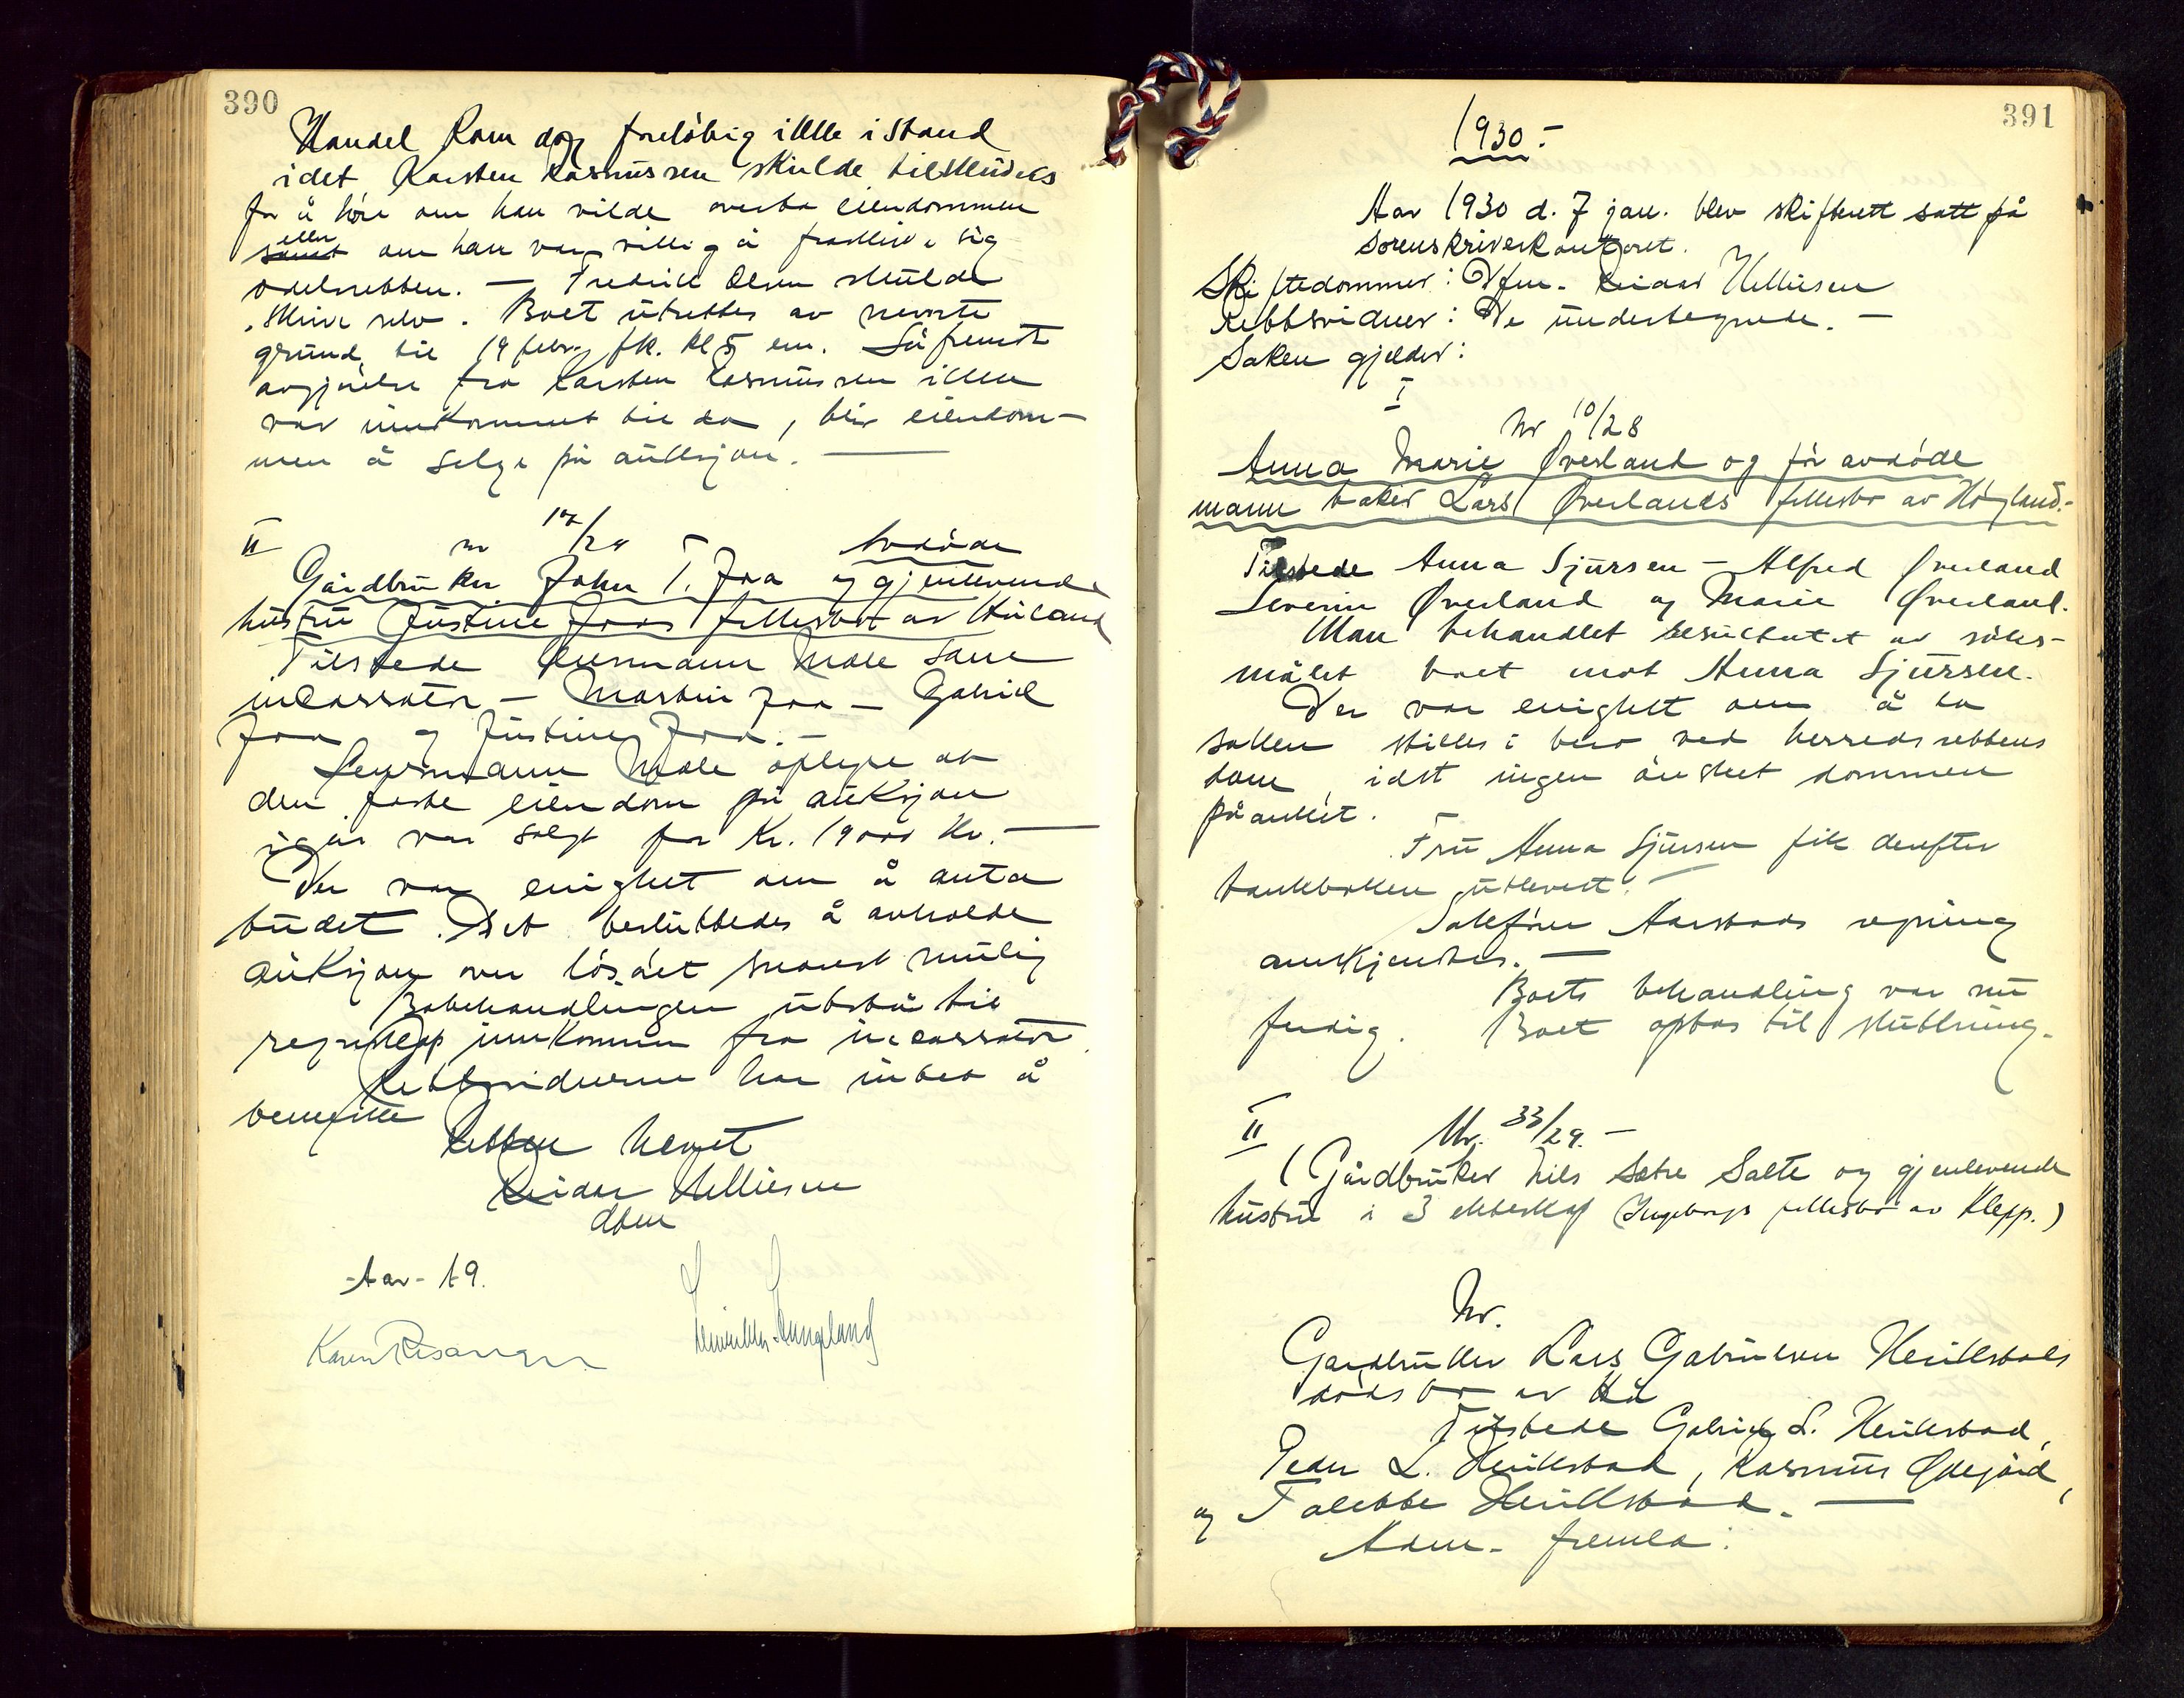 390
Handel kom dog foreløbig ikke istand
idet Karsten Rasmussen skulde tilskrives
for å höre om han vilde overta eiendommen
eller
samt om han var villig å fraskrive sig
odelsretten. — Fredrik Olsen skulde
skrive selv. Boet utsettes av nevnte
grund til 19 febr. fk. kl 5 em. Såfremt
avgjörelse fra Karsten Rasmussen ikke
var innkommet til da, blir eiendom-
men å selge på auksjon. —
II nr 17/28 Avdöde
Gårdbruker John T. Joa og gjenlevende
hustru Justine Joas fellesbo av Håland
Tilstede lensmann Mæle som
incassator - Martin Joa - Gabriel
Joa og Justine Joa. -
Lensmann Mæle oplyste at
den faste eiendom på auksjon
igår var solgt for Kr. 19000 Kr. —
Der var enighet om å anta
budet. Det besluttedes å avholde
auksjon over lösöret snarest mulig
Bobehandlingen utstår til
regnskap innkommer fra incassator.
Rettsvidnerne har intet å
bemerke
Retten hevet
Reidar Helliesen
dfm
Aar - 19.
391
1930.-
Aar 1930 d. 7 jan. blev skifterett satt på
Sorenskriverkontoret.
Skiftedommer: Dfm. Reidar Helliesen
Rettsvidner: De undertegnede. —
Saken gjelder:
I
Nr 10/28
Anna Marie Øverland og før avdöde
mann baker Lars Øverlands fellesbo av Högland.-
Tilstede Anna Sjursen - Alfred Øverland
Severin Øverland og Marie Øverland.
Man behandlet resultatet av söks-
målet boet mot Anna Sjursen.
Der var enighet om å la
saken stilles i bero ved herredsrettens
dom, idet ingen önsket dommen
påanket.
Fru Anna Sjursen fik derefter
bankboken utlevert. -
Sakförer Aarstads regning
anerkjendtes. —
Boets behandling var nu
ferdig. Boet optas til slutning.
II Nr. 33/29. -
(Gårdbruker Nils Sætre Salte og gjenlevende
hustru i 3 ekteskap Ingeborgs fellesbo av Klepp.)
Nr.
Gårdbruker Lars Gabrielsen Heikstads
dödsbo av Hå
Tilstede Gabriel L. Heikstad,
Peder L. Heikstad, Rasmus Ødegård,
og Tolette Heikstad. —
Adm. fremla: